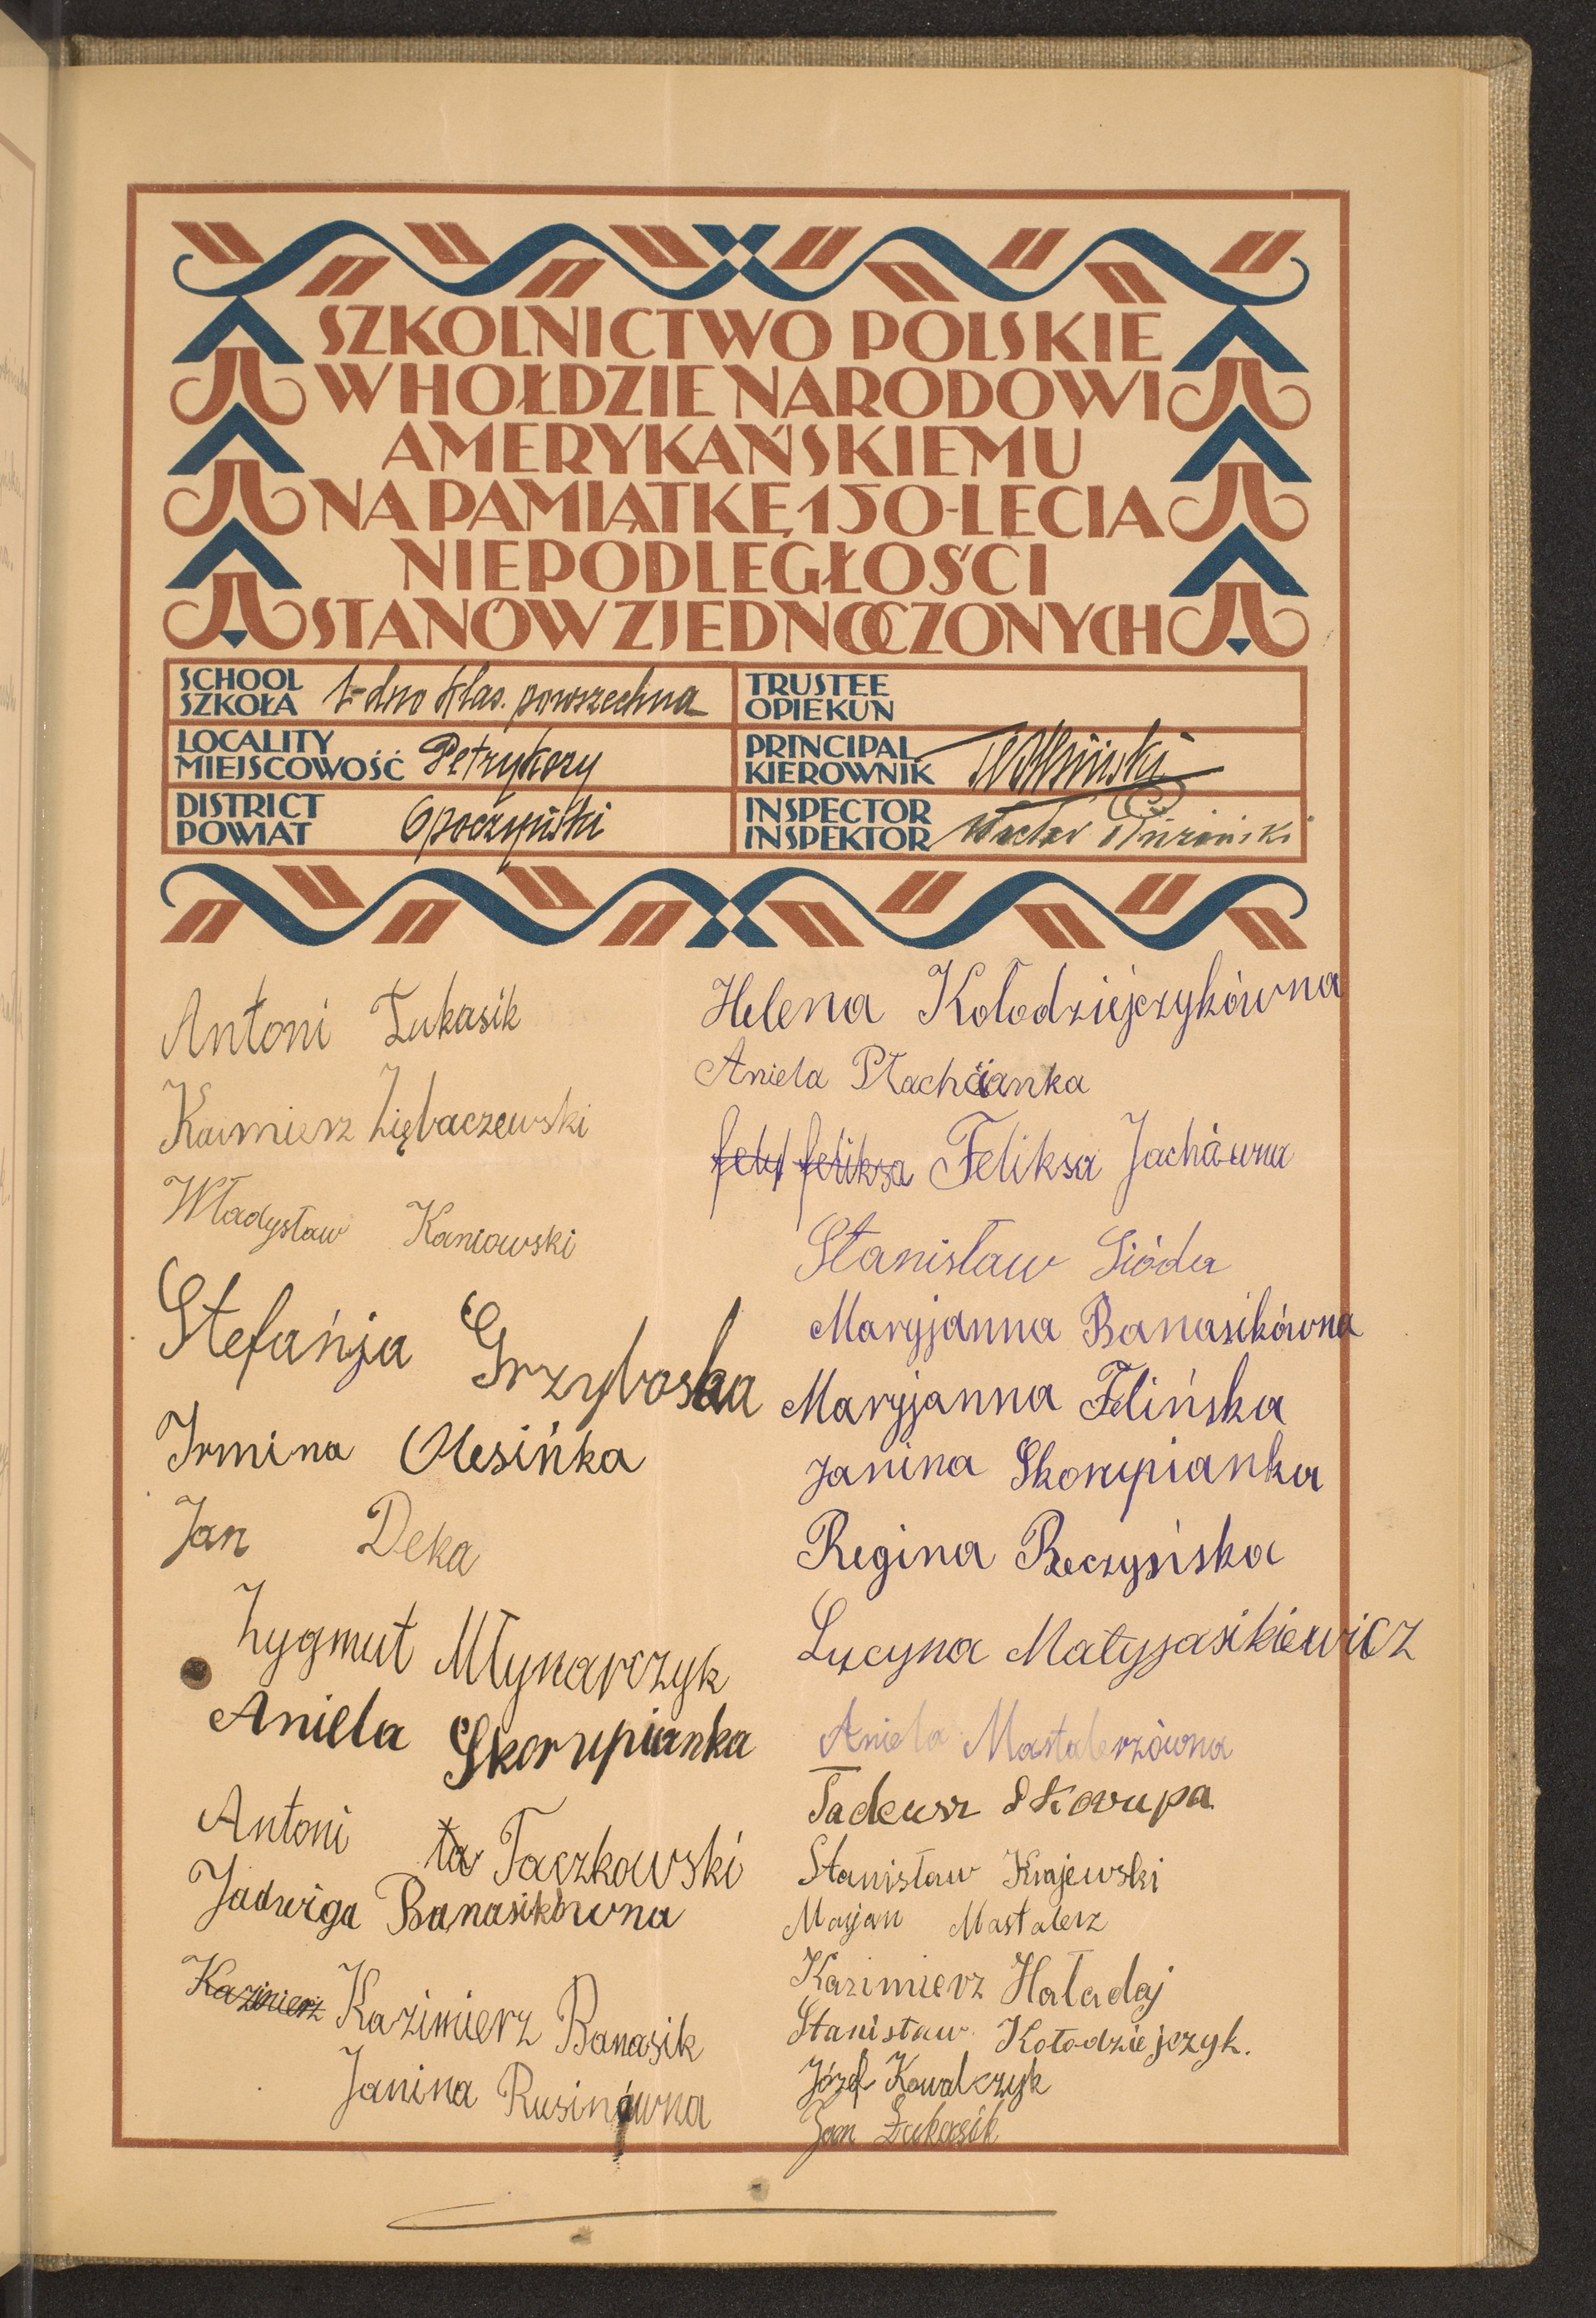 SZKOLNICTWO POLSKIE
W HOŁDZIE NARODOWI
AMERYKAŃSKIEMU
NA PAMIĄTKĘ 150-LECIA
NIEPODLEGŁOŚCI
STANÓW ZJEDNOCZONYCH
SCHOOL
SZKOŁA 1-dno klas. powszechna
TRUSTEE
OPIEKUN
LOCALITY
MIEJSCOWOŚĆ Petrykozy
PRINCIPAL
KIEROWNIK
DISTRICT
POWIAT Opoczyński
INSPECTOR
INSPEKTOR Wacław
Antoni Łukasik
Kaimierz Ziębaczewski
Władysław Kaniowski
Stefańja Grzyboska
Irmina Olesińka
Jan Deka
Zygmut Młynarczyk
Aniela Skorupianka
Antoni ta Taczkowski
Jadwiga Banasikówna
Kazimierz Kazimierz Banasik
Janina Rusinówna
Helena Kołodziejczykówna
Aniela Płachcianka
felu feliksa Feliksa Jachówna
Stanisław Sióda
Maryjanna Banasikówna
Maryjanna Felińska
Janina Skorupianka
Regina Reczyńska
Lucyna Matyjasikiewicz
Aniela Mastalerzówna
Tadeusz Skorupa
Stanisław Krajewski
Marjan Mastalerz
Kazimierz Haładaj
Stanisław Kołodziejczyk.
Józef Kowalczyk
Jan Łukasik